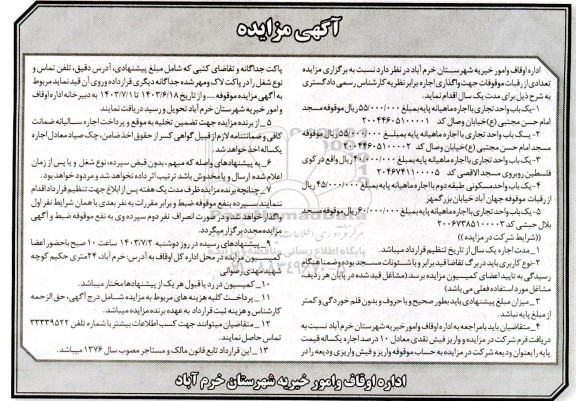 آگهی مزایده
اداره اوقاف وامور خیریه شهرستان خرم آباد در نظر دارد نسبت به برگزاری مزایده
تعدادی از رقبات موقوفات جهت واگذاری اجاره برابر نظریه کارشناس رسمی دادگستری
به شرح ذیل برای مدت یک سال اقدام نماید.
۱-یک باب واحد تجاری با اجاره ماهیانه پایه بمبلغ ۵۵/۰۰۰/۰۰۰ ریال موقوفه مسجد
امام حسن مجتبی (ع) خیابان وصال کد ۲۰۰۴۴۶۰۵۱۰۰۰۰۱
۲-یک باب واحد تجاری با اجاره ماهیانه پایه بمبلغ ۵۵/۰۰۰/۰۰۰ ریال موقوفه
مسجد امام حسن مجتبی (ع) خیابان وصال کد ۲۰۰۴۴۶۰۵۱۰۰۰۰۲
۳-یک باب واحد تجاری با اجاره ماهیانه پایه بمبلغ ۴۰/۰۰۰/۰۰۰ ریال واقع در کوی
فلسطین روبروی مسجد الاقصی کد ۲۰۴۶۷۴۱۱۰۰۰۵
۴-یک باب واحد مسکونی طبقه دوم با اجاره ماهیانه پایه بمبلغ ۴۵/۰۰۰/۰۰۰ ریال
از رقبات موقوفه جهان آباد خیابان بزرگمهر
۵-یک باب واحد تجاری با اجاره ماهیانه پایه بمبلغ ۶۰/۰۰۰/۰۰۰ ریال موقوفه مسجد
بلال حبشی کد ۲۰۰۶۷۳۸۵۱۰۰۰۰۳
((شرایط شرکت در مزایده))
۱_مدت اجاره یک سال از تاریخ تنظیم قرارداد میباشد.
۲-نوع کاربری باید در برگ تقاضا قید برابر و با شئونات مسجد بوده و ضمنا هنگام
رسیدگی به تایید اعضای کمیسیون مزایده برسد (مشاغل قید شده در پایان هر ردیف،
مشاغل مورد استفاده فعلی می باشد)
۳_ میزان مبلغ پیشنهادی باید بطور صحیح و با حروف و بدون قلم خوردگی و کمتر
از مبلغ پایه نباشد.
۴_متقاضیان باید با مراجعه به اداره اوقاف وامور خیریه شهرستان خرم آباد نسبت به
دریافت فرم شرکت در مزایده و واریز فیش نقدی معادل ۱۰ درصد اجاره یکساله قیمت
پایه را بعنوان ودیعه شرکت در مزایده به حساب موقوفه واریز و فیش واریزی ودیعه را در
پاکت جداگانه و تقاضای کتبی که شامل مبلغ پیشنهادی، آدرس دقیق، تلفن تماس و
نوع شغل را در پاکت لاک و مهر شده جداگانه دیگری قرار داده و روی آن قید نماید مربوط
به آگهی مزایده موقوفه .... و از تاریخ ۱۴۰۳/۶/۱۸ تا ۱۴۰۳/۷/۱ به دبیرخانه اداره اوقاف
و امور خیریه شهرستان خرم آباد تحویل و رسید دریافت نمایند
۵_ از برنده مزایده جهت تضمین تخلیه به موقع و پرداخت اجاره سالیانه ضمانت
کافی و ضمانتنامه لازم از قبیل گواهی کسر از حقوق اخذ ضامن، چک صیاد معادل اجاره
یکساله اخذ خواهد شد.
۶_ به پیشنهادهای واصله که مبهم، بدون فیش سپرده، نوع شغل و یا پس از زمان
اعلام شده ارسال و یا مخدوش باشد ترتیب اثر داده نخواهد شد و مردود خواهد بود.
۷_ چنانچه برنده مزایده ظرف مدت یک هفته پس از ابلاغ جهت تنظیم قرارداد اقدام
ننماید سپرده بنفع موقوفه ضبط و برابر مقررات به نفر بعدی با همان شرایط نفر اول
واگذار خواهد شد و در صورت انصراف نفر دوم سپرده وی به نفع موقوفه ضبط و آگهی
مزایده مجدد برگزار میگردد.
۹_ پیشنهادهای رسیده در روز دوشنبه ۱۴۰۳/۷/۲ ساعت ۱۰ صبح با حضور اعضا
کمیسیون مزایده در محل اداره کل اوقاف به آدرس: خرم آباد، ۲۴متری حکیم کوچه
شهید مهدی رضوانی
۱۰_ کمیسیون در رد یا قبول هر یک از پیشنهادها مختار میباشد.
۱۱_ پرداخت کلیه هزینه های مربوط به مزایده شامل درج آگهی، حق الزحمه
کارشناس و هزینه ثبت قرارداد به عهده برنده مزایده میباشد.
۱۲_ متقاضیان میتوانند جهت کسب اطلاعات بیشتر با شماره تلفن ۳۳۳۳۹۵۲۲
تماس حاصل نمایند.
۱۳ _ این قرارداد تابع قانون مالک و مستاجر مصوب سال ۱۳۷۶ میباشد.
اداره اوقاف وامور خیریه شهرستان خرم آباد